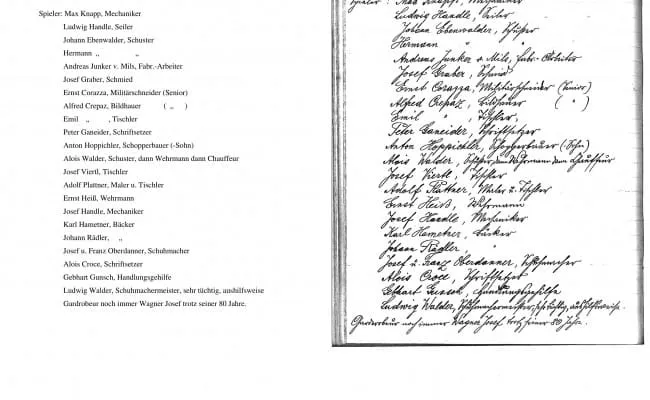 Spieler: Max Knapp, Mechaniker
Ludwig Handle, Seiler
Johann Ebenwalder, Schuster
Hermann „ „
Andreas Junker v. Mils, Fabr.-Arbeiter
Josef Graber, Schmied
Ernst Corazza, Militärschneider (Senior)
Alfred Crepaz, Bildhauer ( „ )
Emil „ , Tischler
Peter Ganeider, Schriftsetzer
Anton Hoppichler, Schopperbauer (-Sohn)
Alois Walder, Schuster, dann Wehrmann dann Chauffeur
Josef Viertl, Tischler
Adolf Plattner, Maler u. Tischler
Ernst Heiß, Wehrmann
Josef Handle, Mechaniker
Karl Hametner, Bäcker
Johann Rädler, „
Josef u. Franz Oberdanner, Schuhmacher
Alois Croce, Schriftsetzer
Gebhart Gunsch, Handlungsgehilfe
Ludwig Walder, Schuhmachermeister, sehr tüchtig, aushilfsweise
Gardrobeur noch immer Wagner Josef trotz seiner 80 Jahre.
Spieler: Max Knapp, Mechaniker
Ludwig Handle, Seiler
Johann Ebenwalder, Schuster
Hermann " "
Andreas Junker v. Mils, Fabr.-Arbeiter
Josef Graber, Schmied
Ernst Corazza, Militärschneider (Senior)
Alfred Crepaz, Bildhauer ( " )
Emil " , Tischler,
Peter Ganeider, Schriftsetzer
Anton Hoppichler, Schopperbauer (Sohn)
Alois Walder, Schuster, dann Wehrmann dann Chauffeur
Josef Viertl, Tischler
Adolf Plattner, Maler u. Tischler
Ernst Heiß, Wehrmann
Josef Handle, Mechaniker
Karl Hametner, Bäcker
Johann Rädler, "
Josef u. Franz Oberdanner, Schuhmacher
Alois Croce, Schriftsetzer
Gebhart Gunsch, Handlungsgehilfe
Ludwig Walder, Schuhmachermeister, sehr tüchtig, aushilfsweise.
Garderobeur noch immer Wagner Josef trotz seiner 80 Jahre.